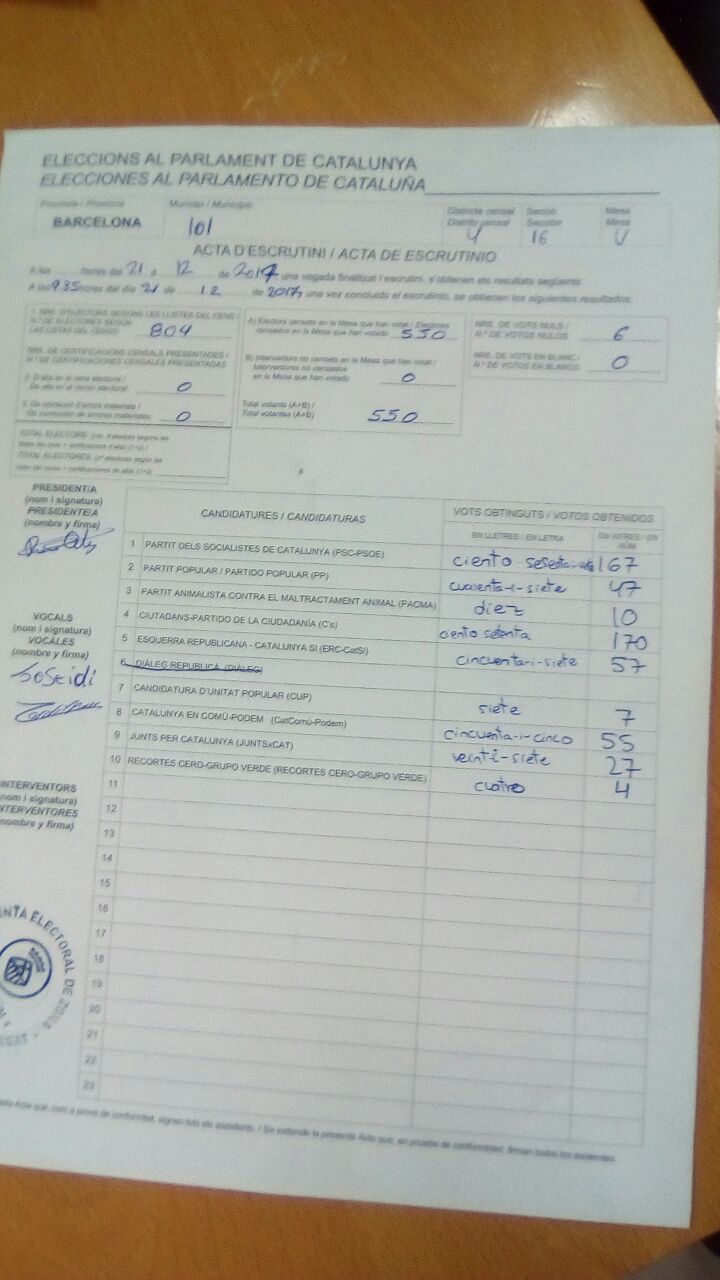 ELECCIONS AL PARLAMENT DE CATALUNYA
ELECCIONES AL PARLAMENTO DE CATALUÑA
Província / Provincia
Municipi / Municipio
Districte censal
Distrito censal
Secció
Sección
Mesa
Mesa
BARCELONA
101
4
16
U
ACTA D'ESCRUTINI / ACTA DE ESCRUTINIO
A les hores del 21 d 12 de 2017 una vegada finalitzat l'escrutini, s'obtenen els resultats següents:
A las 9 35 horas del día 21 de 12 de 2017, una vez concluido el escrutinio, se obtienen los siguientes resultados:
1. NRE. D'ELECTORS SEGONS LES LLISTES DEL CENS /
N.º DE ELECTORES SEGÚN
LAS LISTAS DEL CENSO 804
NRE. DE CERTIFICACIONS CENSALS PRESENTADES /
N.º DE CERTIFICACIONES CENSALES PRESENTADAS
2. D'alta en el cens electoral /
De alta en el censo electoral 0
3. De correcció d'errors materials /
De corrección de errores materiales 0
TOTAL ELECTORS
TOTAL ELECTORES
A) Electors censats en la Mesa que han votat / Electores
censados en la Mesa que han votado 550
B) Interventors no censats en la Mesa que han votat /
Interventores no censados
en la Mesa que han votado 0
Total votants (A+B) /
Total votantes (A+B) 550
NRE. DE VOTS NULS /
N.º DE VOTOS NULOS 6
NRE. DE VOTS EN BLANC /
N.º DE VOTOS EN BLANCO 0
PRESIDENT/A
(nom i signatura)
PRESIDENTE/A
(nombre y firma)
VOCALS
(nom i signatura)
VOCALES
(nombre y firma)
INTERVENTORS
(nom i signatura)
INTERVENTORES
(nombre y firma)
CANDIDATURES / CANDIDATURAS
VOTS OBTINGUTS / VOTOS OBTENIDOS
EN LLETRES / EN LETRA
EN XIFRES / EN NÚM.
1 PARTIT DELS SOCIALISTES DE CATALUNYA (PSC-PSOE) ciento 167
2 PARTIT POPULAR / PARTIDO POPULAR (PP) cuarenta-i-siete 47
3 PARTIT ANIMALISTA CONTRA EL MALTRACTAMENT ANIMAL (PACMA) diez 10
4 CIUTADANS-PARTIDO DE LA CIUDADANÍA (C's) ciento setenta 170
5 ESQUERRA REPUBLICANA - CATALUNYA SÍ (ERC-CatSí) cincuenta-i-siete 57
6 DIÀLEG REPUBLICÀ (DIÀLEG)
7 CANDIDATURA D'UNITAT POPULAR (CUP) siete 7
8 CATALUNYA EN COMÚ-PODEM (CatComú-Podem) cincuenta-i-cinco 55
9 JUNTS PER CATALUNYA (JUNTSxCAT) veinti-siete 27
10 RECORTES CERO-GRUPO VERDE (RECORTES CERO-GRUPO VERDE) cuatro 4
11
12
13
14
15
16
17
18
19
20
21
22
23
JUNTA ELECTORAL DE ZONA
Acte que, com a prova de conformitat, signen tots els assistents. / Se extiende la presente Acta que, en prueba de conformidad, firman todos los asistentes.